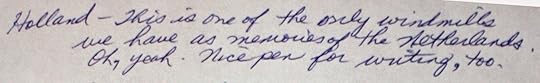 Holland - This is one of the only windmills
we have as memories of the Netherlands.
Oh, yeah. Nice pen for writing, too.